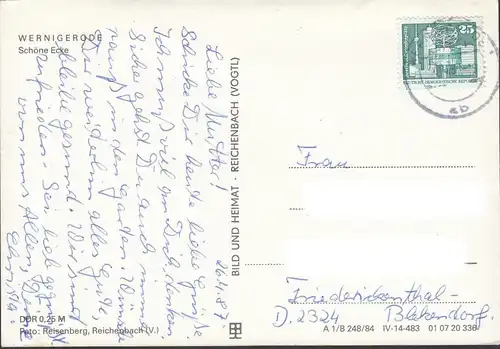 WERNIGERODE
Schöne Ecke
26.4.87
Liebe Mutter!
Schicke Dir heute liebe Grüße.
Ich muß viel an Dich denken.
Sicher gehst Du auch mal
raus in den Garten. Wünsche
Dir weiterhin alles Gute,
bleibe gesund. Wir sind
zufrieden. Sei lieb gegrüßt
von uns Allen, Deine
DDR 0,25 M
Foto: Reisenberg, Reichenbach (V.)
BILD UND HEIMAT · REICHENBACH (VOGTL)
25
DEUTSCHE DEMOKRATISCHE REPUBLIK
ab
Frau
Friederickenthal-
D. 2324 Blakendorf.
A 1/B 248/84 IV-14-483 01 07 20 336